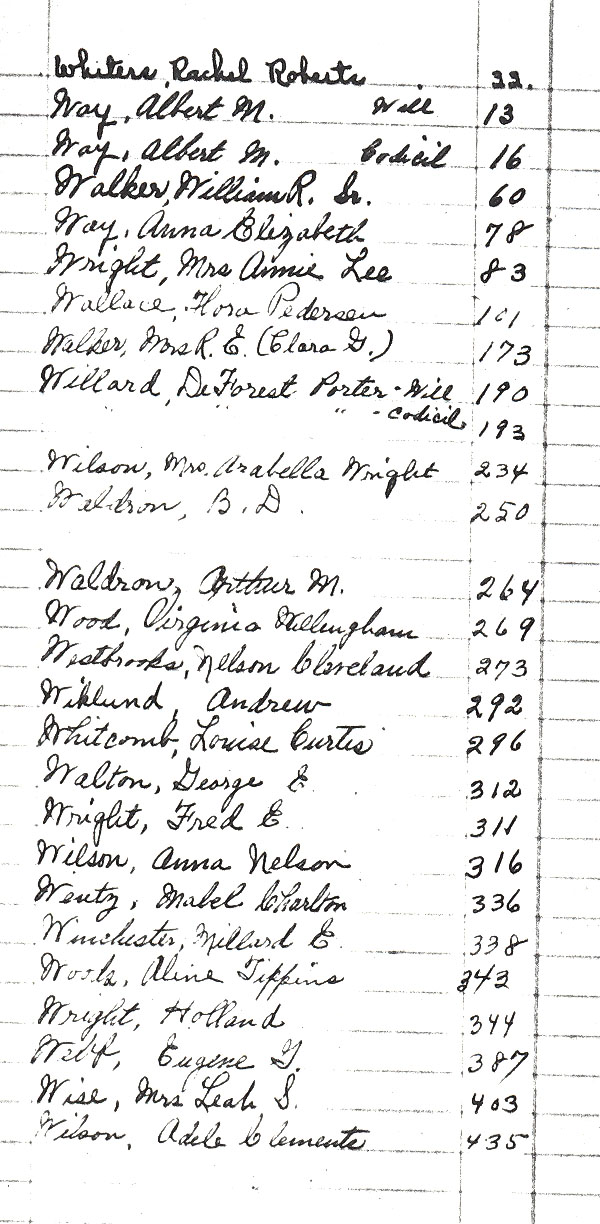 Whiters, Rachel Roberts 22.
Way, Albert M. Will 13
Way, Albert M. Codicil 16
Walker, William R. Sr. 60
Way, Anna Elizabeth 78
Wright, Mrs Annie Lee 83
Wallace, Flora Pedersen 101
Walker, Mrs R. E. (Clara G.) 173
Willard, DeForest Porter - Will 190
" " " - Codicil 193
Wilson, Mrs. Arabella Wright 234
Waldron, B. D. 250
Waldron, Arthur M. 264
Wood, Virginia Willingham 269
Westbrooks, Nelson Cleveland 273
Wiklund, Andrew 292
Whitcomb, Louise Curtis 296
Walton, George E. 312
Wright, Fred E. 311
Wilson, Anna Nelson 316
Wentz, Mabel Charlton 336
Winchester, Millard E. 338
Woods, Aline Tippins 343
Wright, Holland 344
Eugene 387
Wise, Mrs Leah S. 403
Wilson, Adele Clements 435